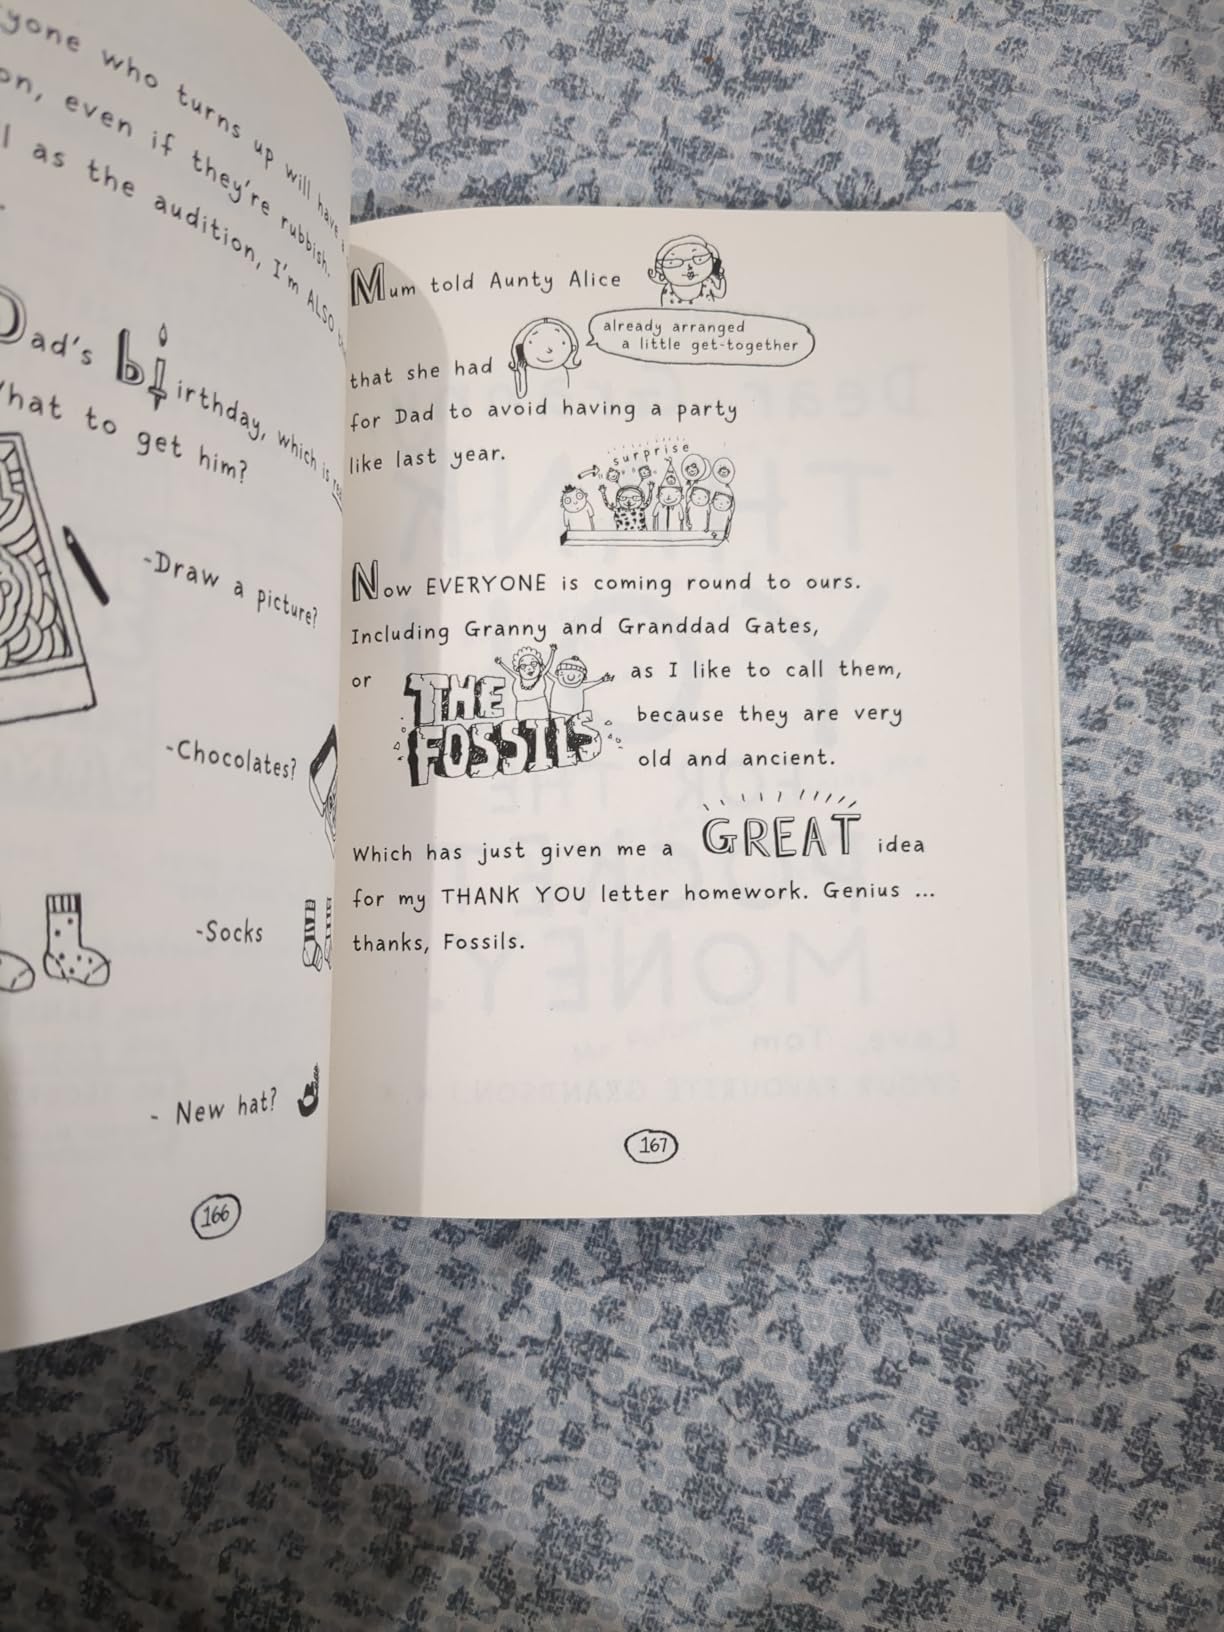 yone who turns up will have a
on, even if they're rubbish.
l as the audition, I'm ALSO
Dad's birthday, which is
hat to get him?
-Draw a picture?
-Chocolates?
-Socks
- New hat?
166
Mum told Aunty Alice
already arranged
a little get-together
that she had
for Dad to avoid having a party
like last year.
surprise
Now EVERYONE is coming round to ours.
Including Granny and Granddad Gates,
or THE FOSSILS as I like to call them,
because they are very
old and ancient.
Which has just given me a GREAT idea
for my THANK YOU letter homework. Genius ...
thanks, Fossils.
167